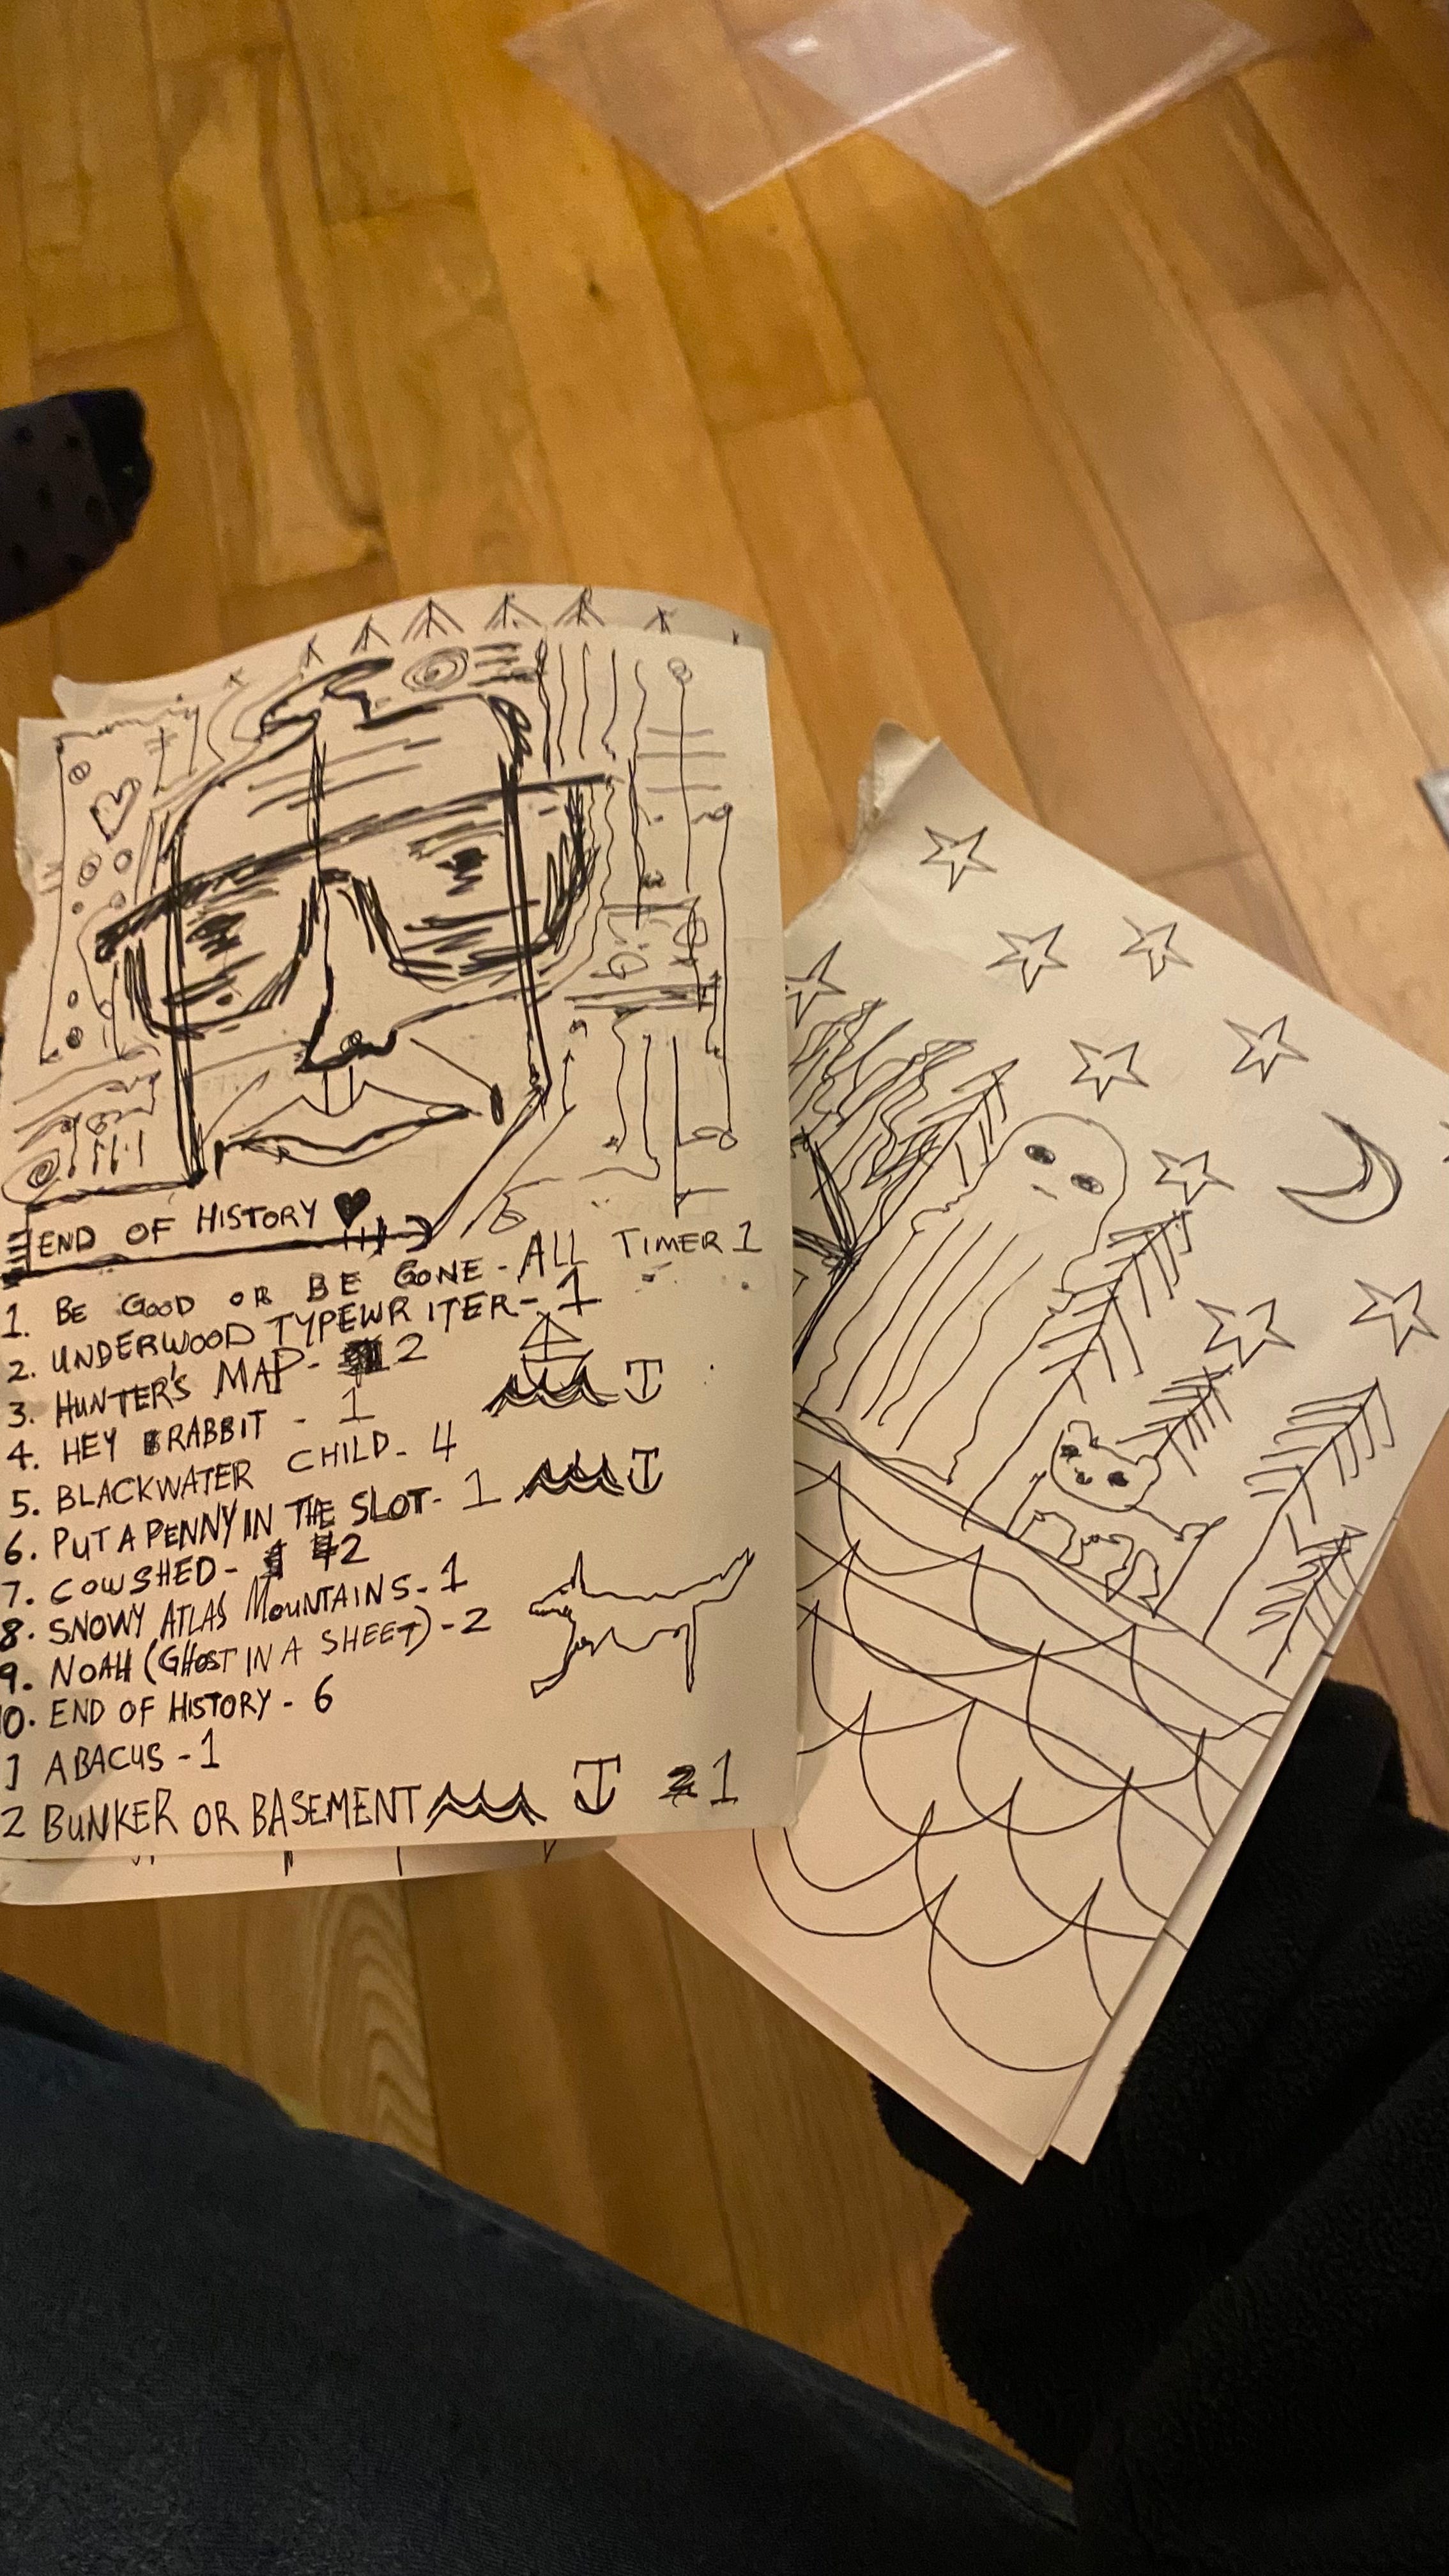 END OF HISTORY
1. BE GOOD OR BE GONE - ALL TIMER 1
2. UNDERWOOD TYPEWRITER - 1
3. HUNTER'S MAP - 2
4. HEY RABBIT - 1
5. BLACKWATER CHILD - 4
6. PUT A PENNY IN THE SLOT - 1
7. COWSHED - 2
8. SNOWY ATLAS MOUNTAINS - 1
9. NOAH (GHOST IN A SHEET) - 2
10. END OF HISTORY - 6
1 ABACUS - 1
2 BUNKER OR BASEMENT 1